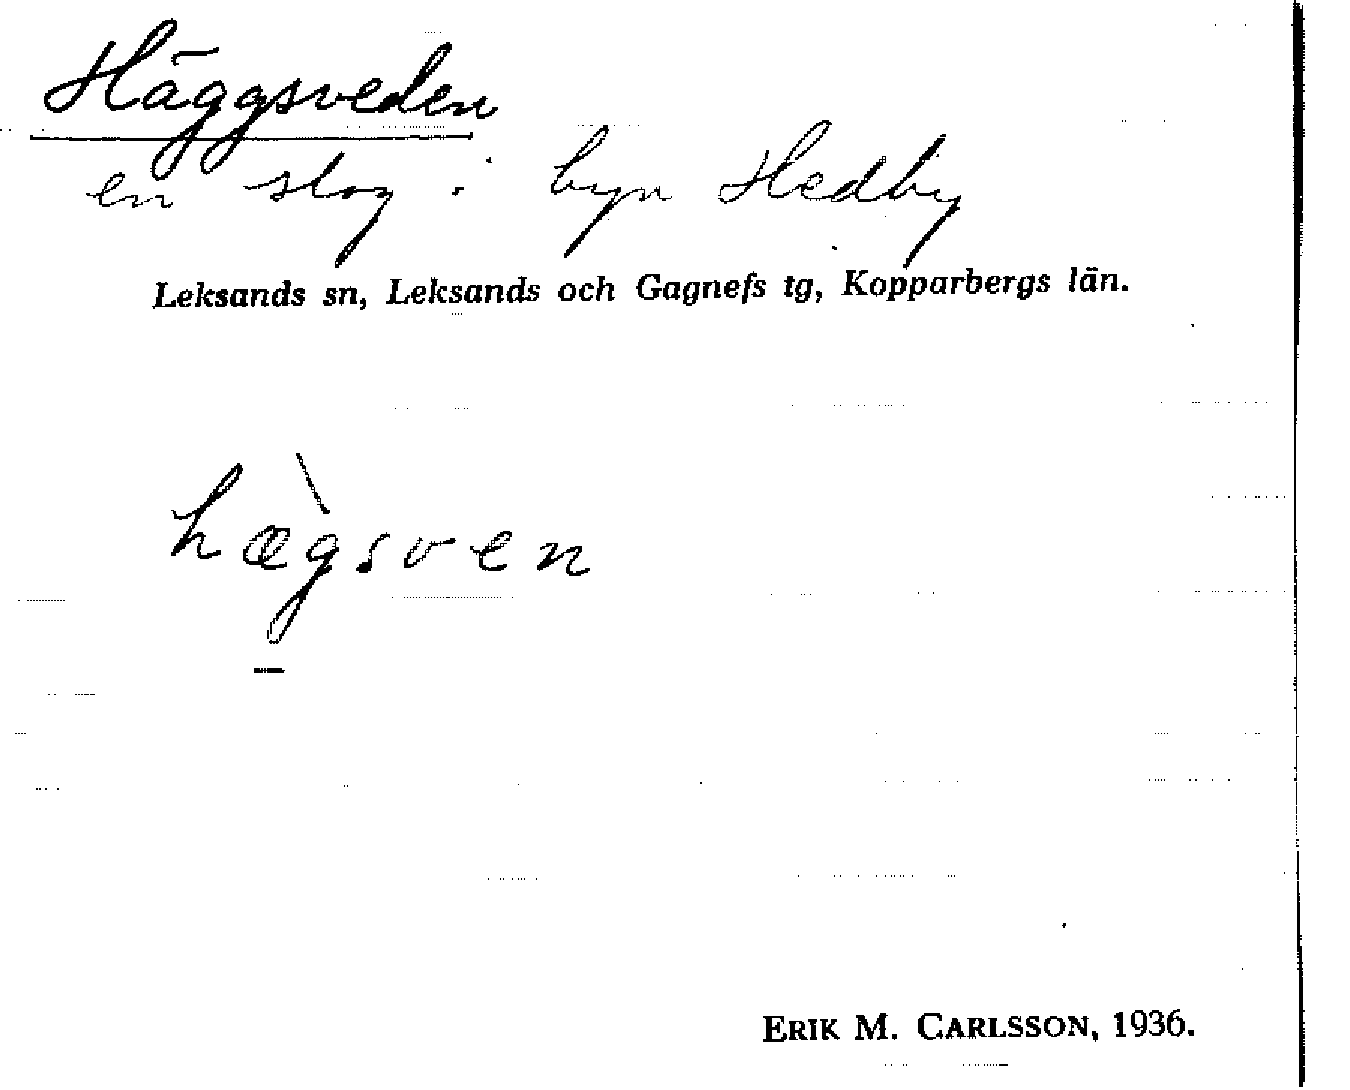 Häggsveden
en slog i byn Hedby
Leksands sn, Leksands och Gagnefs tg, Kopparbergs län.
hæ̀gsven
ERIK M. CARLSSON, 1936.